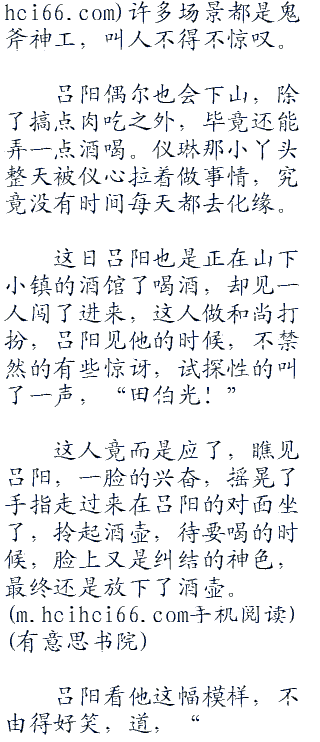 hci66.com)许多场景都是鬼
斧神工，叫人不得不惊叹。
吕阳偶尔也会下山，除
了搞点肉吃之外，毕竟还能
弄一点酒喝。仪琳那小丫头
整天被仪心拉着做事情，究
竟没有时间每天都去化缘。
这日吕阳也是正在山下
小镇的酒馆了喝酒，却见一
人闯了进来，这人做和尚打
扮，吕阳见他的时候，不禁
然的有些惊讶，试探性的叫
了一声，“田伯光！”
这人竟而是应了，瞧见
吕阳，一脸的兴奋，摇晃了
手指走过来在吕阳的对面坐
了，拎起酒壶，待要喝的时
候，脸上又是纠结的神色，
最终还是放下了酒壶。
(m.hcihci66.com手机阅读)
(有意思书院)
吕阳看他这幅模样，不
由得好笑，道，“